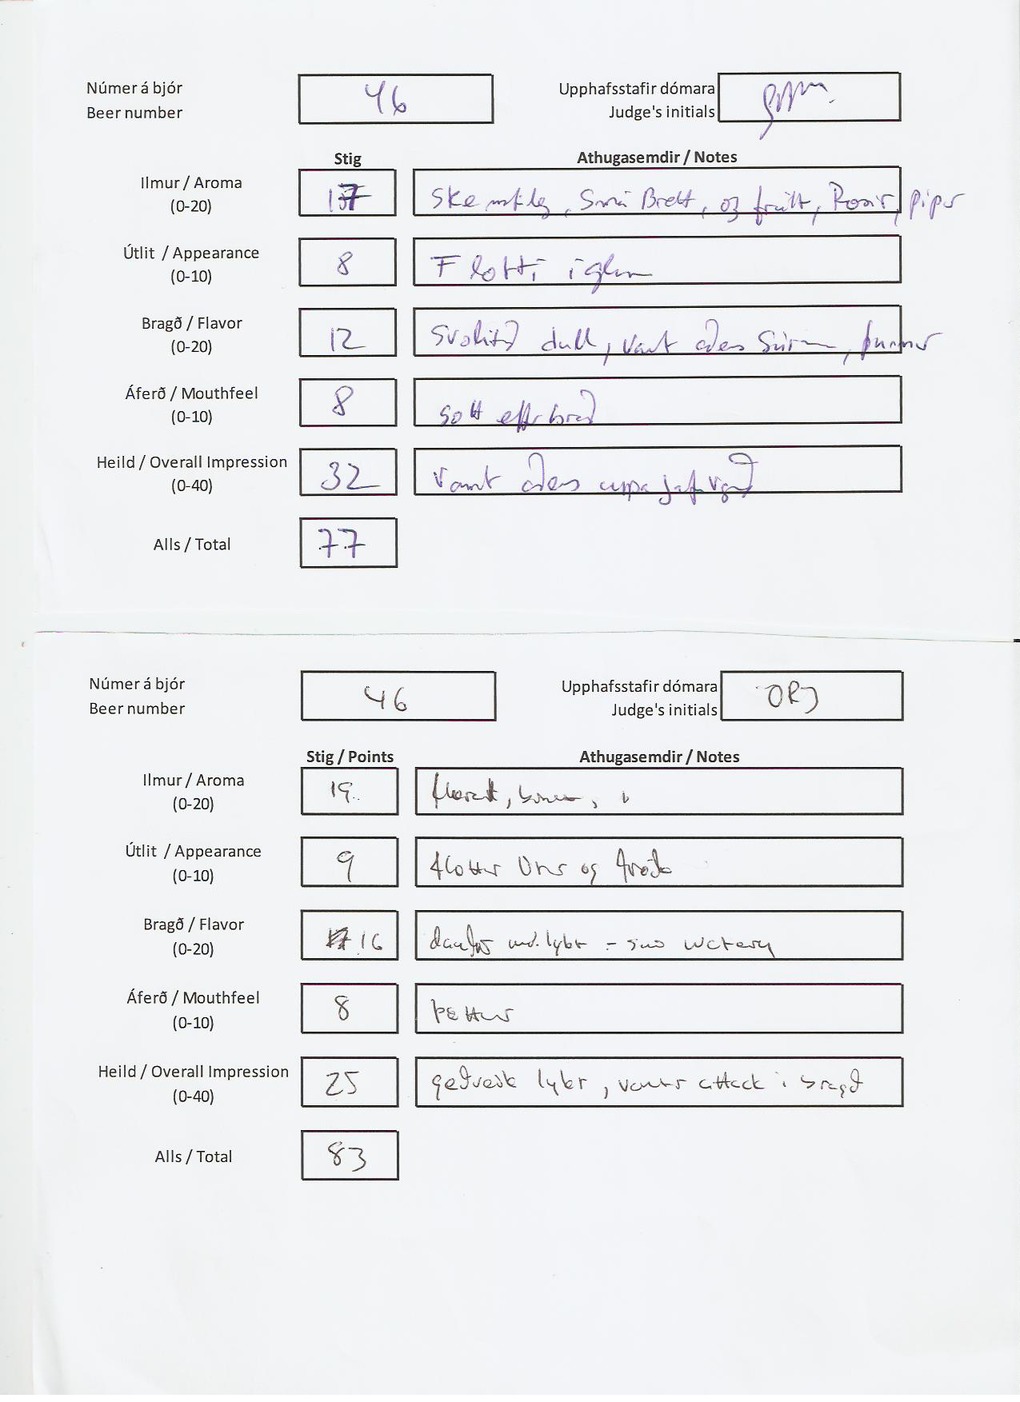 Númer á bjór 46 Upphafsstafir dómara
Beer number Judge's initials
Stig Athugasemdir / Notes
Ilmur / Aroma 17 Skemtileg, Smá Brett, og frútt, Rosir, pipar
(0-20)
Útlit / Appearance 8 Flottí í glasi
(0-10)
Bragð / Flavor 12 Svolitið dull, vant aðens Súrn, þunnur
(0-20)
Áferð / Mouthfeel 8 sott eftirbragð
(0-10)
Heild / Overall Impression 32 vamt aðens uppa jafvgð
(0-40)
Alls / Total 77
Númer á bjór 46 Upphafsstafir dómara ORJ
Beer number Judge's initials
Stig / Points Athugasemdir / Notes
Ilmur / Aroma 19
(0-20)
Útlit / Appearance 9 flottur og froða
(0-10)
Bragð / Flavor 16 daufur m.v. lykt - smá watery
(0-20)
Áferð / Mouthfeel 8 þettur
(0-10)
Heild / Overall Impression 25 geðveik lykt, vantar attack í bragð
(0-40)
Alls / Total 83